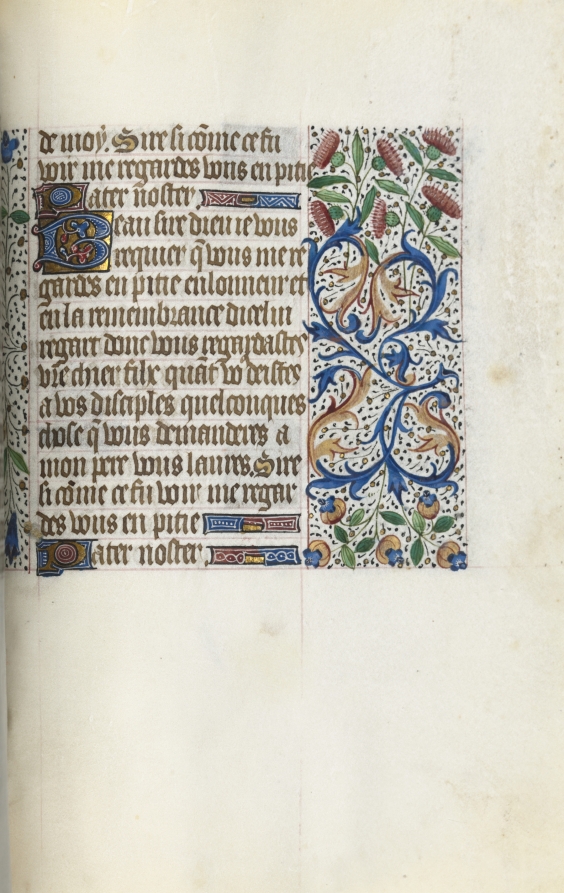 de moy. Sire si cõme ce fu
voir me regardes vous en pitie
Pater noster
Beau sire dieu ie vous
requier q̃ vous me re
gardes en pitie en lonneur et
en la remembrance dicelui
regart dont vous regardastes
vr̃e chier filz quãt vo deistes
a vos disciples quelconques
chose q̃ vous demanderes a
mon pere vous laures. Sire
si cõme ce fu voir me regar
des vous en pitie
Pater noster.